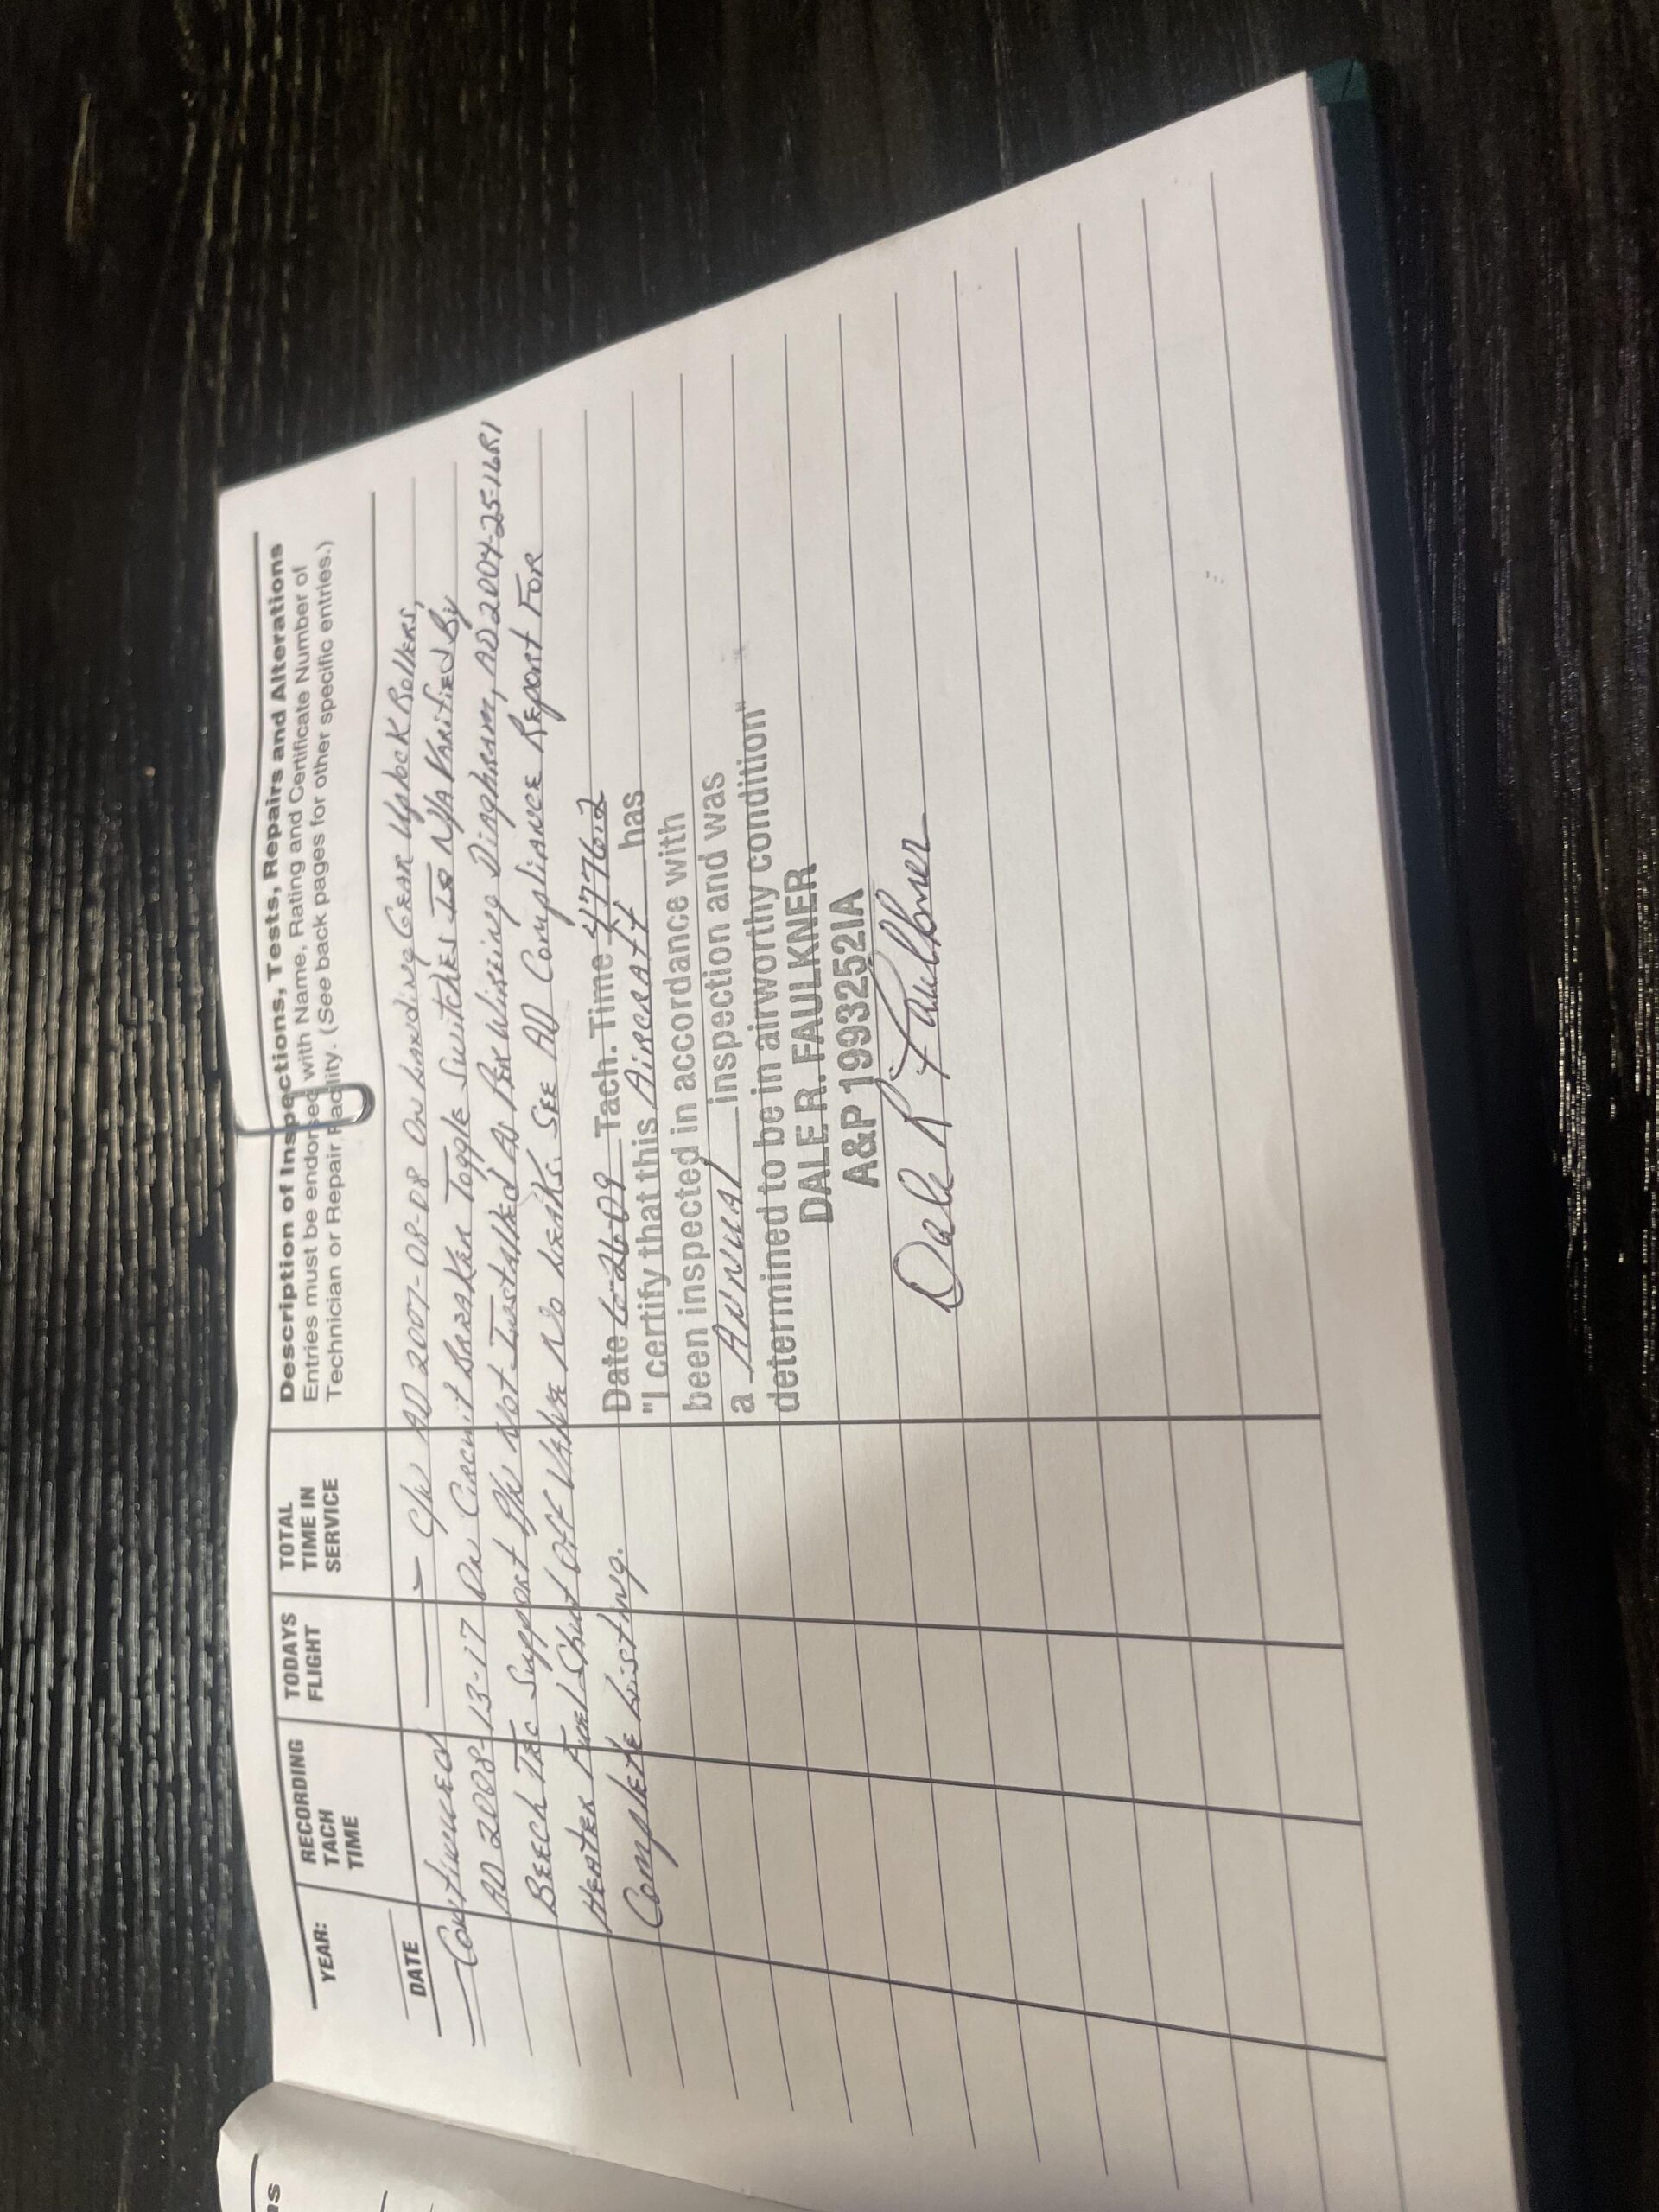 Description of Inspections, Tests, Repairs and Alterations
Entries must be endorsed with Name, Rating and Certificate Number of
Technician or Repair Facility. (See back pages for other specific entries.)
YEAR:
DATE
RECORDING
TACH
TIME
TODAYS
FLIGHT
TOTAL
TIME IN
SERVICE
Continued C/W AD 2007-08-08 On Landing Gear Uplock Rollers,
AD 2008-13-17 On Circuit Breaker Toggle Switches Is N/A Varified By
Beech Tec Support P/N Not Installed As Per Wireing Diaghram, AD 2004-25-16R1
Heater Fuel Shut Off Valve No Leaks. See AD Compliance Report For
Complete Listing.
Date 6-26-09 Tach. Time 4776.2
"I certify that this Aircraft has
been inspected in accordance with
a Annual inspection and was
determined to be in airworthy condition"
DALE R. FAULKNER
A&P 1993252IA
Dale R Faulkner